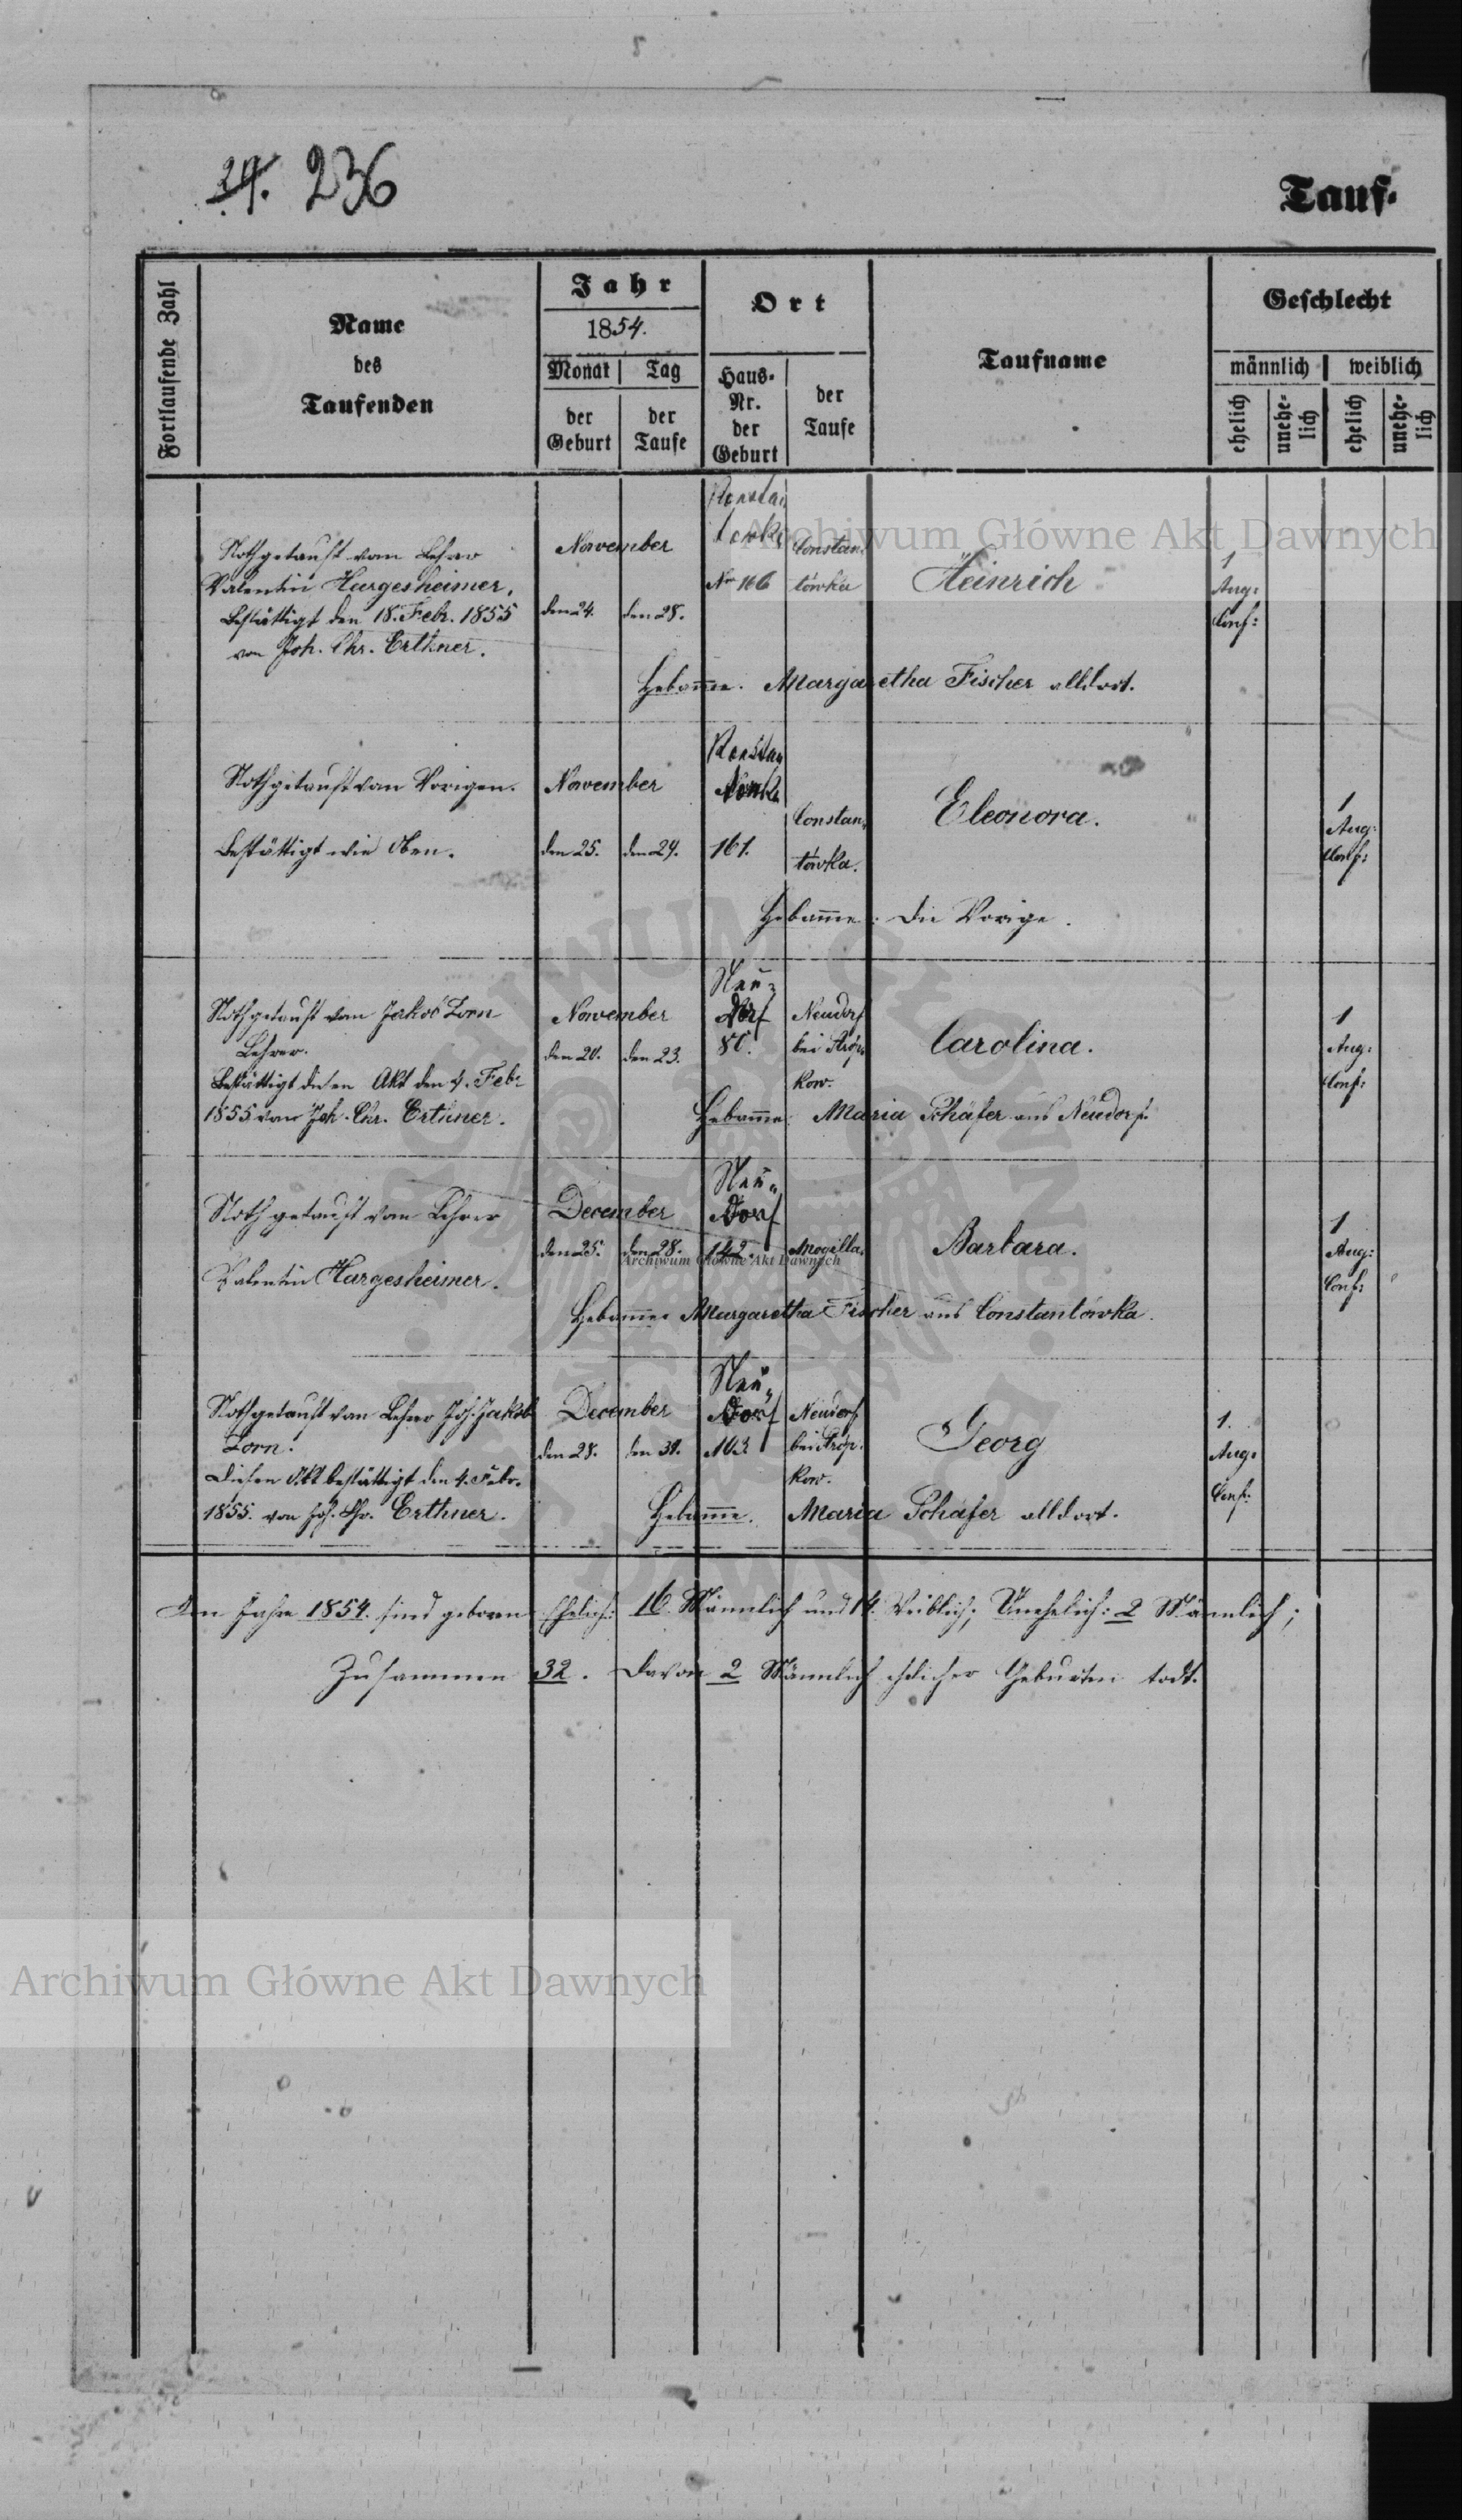 24. 236
Tauf-
Fortlaufende Zahl
Name
des
Taufenden
Jahr
1854.
Monat
Tag
der
Geburt
der
Taufe
Ort
Haus-
Nr.
der
Geburt
der
Taufe
Taufname
Geschlecht
männlich
weiblich
ehelich
unehe-
lich
ehelich
unehe-
lich
Nothgetauft vom Lehrer
Valentin Hargesheimer.
Bestättigt den 18. Febr. 1855
von Joh. Chr. Erthner.
November
den 24.
den 28.
Nr 166
Constan-
tówka
Heinrich
1
Aug:
Conf:
Hebamme. Margaretha Fischer alldort.
Nothgetauft vom Vorigen.
Bestättigt wie Oben.
November
den 25.
den 29.
161.
Constan-
tówka.
Eleonora.
1
Aug:
Conf:
Hebamme: die Vorige.
Nothgetauft vom Jakob Zorn
Lehrer.
Bestättigt diesen Akt den 4. Febr
1855 von Joh. Chr. Erthner.
November
den 20.
den 23.
Neu-
dorf
80.
Neudorf
bei
kow.
Carolina.
1
Aug:
Conf:
Hebamme: Maria Schäfer aus Neudorf.
Nothgetauft vom Lehrer
Valentin Hargesheimer.
December
den 25.
den 28.
Neu-
dorf
142.
Mogilla.
Barbara.
1
Aug:
Conf:
Hebamme Margaretha Fischer aus Constantówka.
Nothgetauft vom Lehrer Joh. Jakob
Zorn.
Diesen Akt bestättigt den 4. Febr.
1855. von Joh. Chr. Erthner.
December
den 28.
den 31.
Neu-
dorf
103
Neudorf
bei
kow.
Georg
1.
Aug:
Conf:
Hebamme. Maria Schäfer alldort.
Im Jahre 1854. sind geboren Ehelich: 16. Männlich und 14. Weiblich; Unehelich: 2 Männlich;
Zusammen 32. Davon 2 Männlich ehelicher Geburten todt.
Archiwum Główne Akt Dawnych
Archiwum Główne Akt Dawnych
Archiwum Główne Akt Dawnych